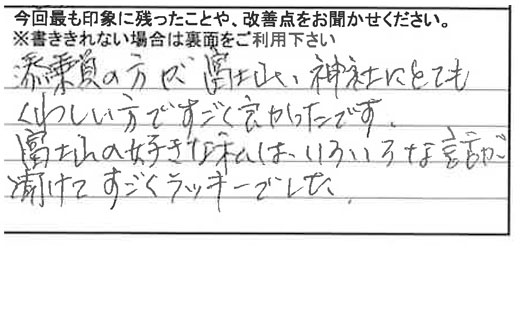 今回最も印象に残ったことや、改善点をお聞かせください。
※書ききれない場合は裏面をご利用下さい
添乗員の方が富士山、神社にとても
くわしい方ですごく良かったです。
富士山の好きな私は、いろいろな話が
聞けてすごくラッキーでした。